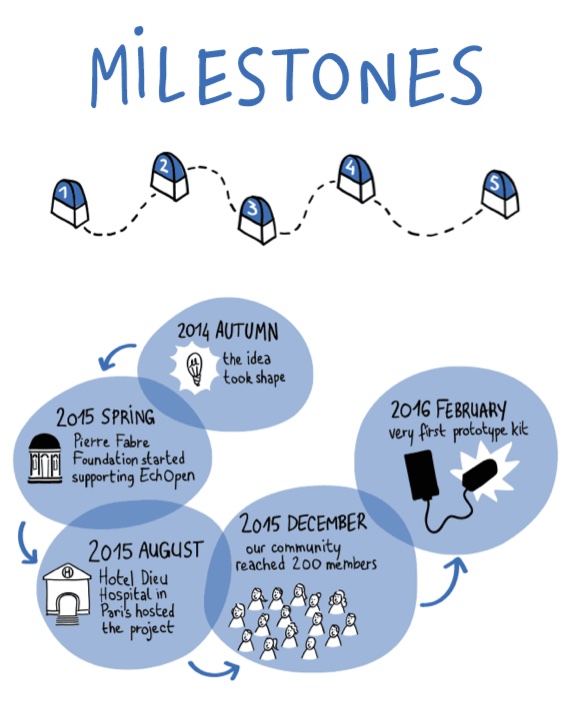 MILESTONES
1
2
3
4
5
2014 AUTUMN
the idea
took shape
2015 SPRING
Pierre Fabre
Foundation started
supporting EchOpen
2015 AUGUST
H
Hotel Dieu
Hospital in
Paris hosted
the project
2015 DECEMBER
our community
reached 200 members
2016 FEBRUARY
very first prototype kit